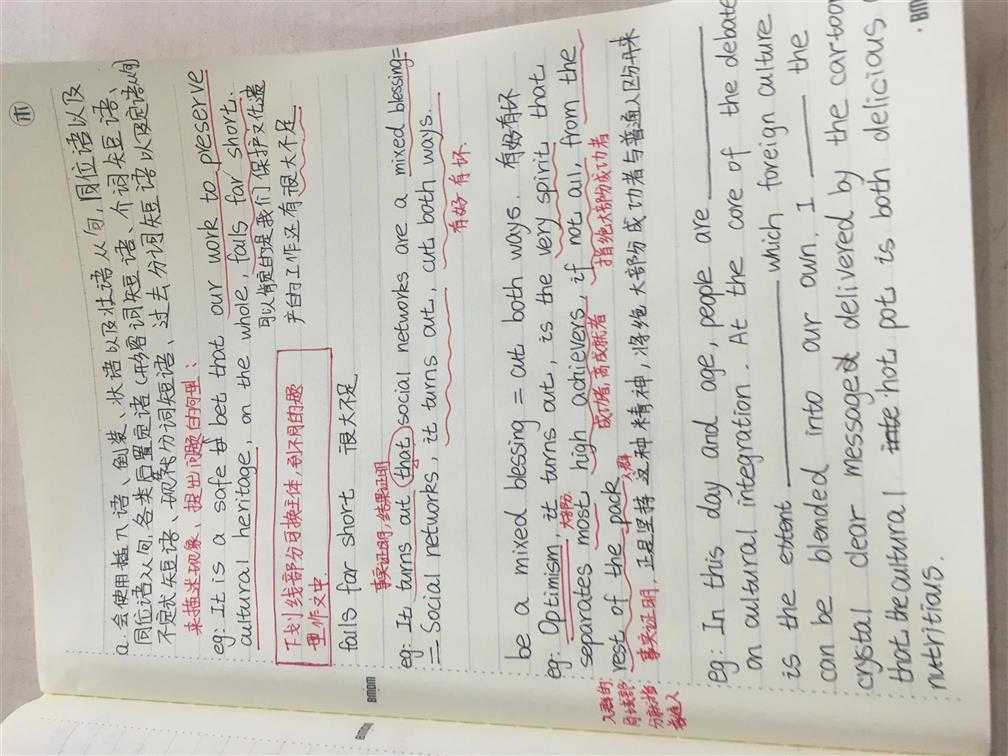 木
a. 会使用插入语、倒装、状语以及状语从句、同位语以及
同位语从句, 各类后置定语 (形容词短语、介词短语、
不定式短语、现在分词短语、过去分词短语以及定语从句)
来描述现象、提出问题的句型:
eg: It is a safe bet that our work to preserve
cultural heritage, on the whole, falls far short.
可以肯定的是我们保护文化遗
产的工作还有很大不足
下划线部分可换主体到不同的题
作文中.
falls far short 很大不足
事实证明, 结果证明
eg: It turns out that social networks are a mixed blessing=
= Social networks, it turns out, cut both ways.
有好有坏.
be a mixed blessing = cut both ways. 有好有坏
eg: Optimism, it turns out, is the very spirit that
separates most high achievers, if not all, from the
大部分
成功者, 高成就者
指绝大部分成功者
rest of the pack
人群
事实证明, 正是坚持这种精神, 将绝大部分成功者与普通人区分开来
人群的
分新指
普通人
eg: In this day and age, people are ______
on cultural integration. At the core of the debate
is the extent ______ which foreign culture
can be blended into our own. I ______ the
crystal clear message delivered by the cartoon
that the cultural hot pot is both delicious
nutritials.
BMDM
BMDM